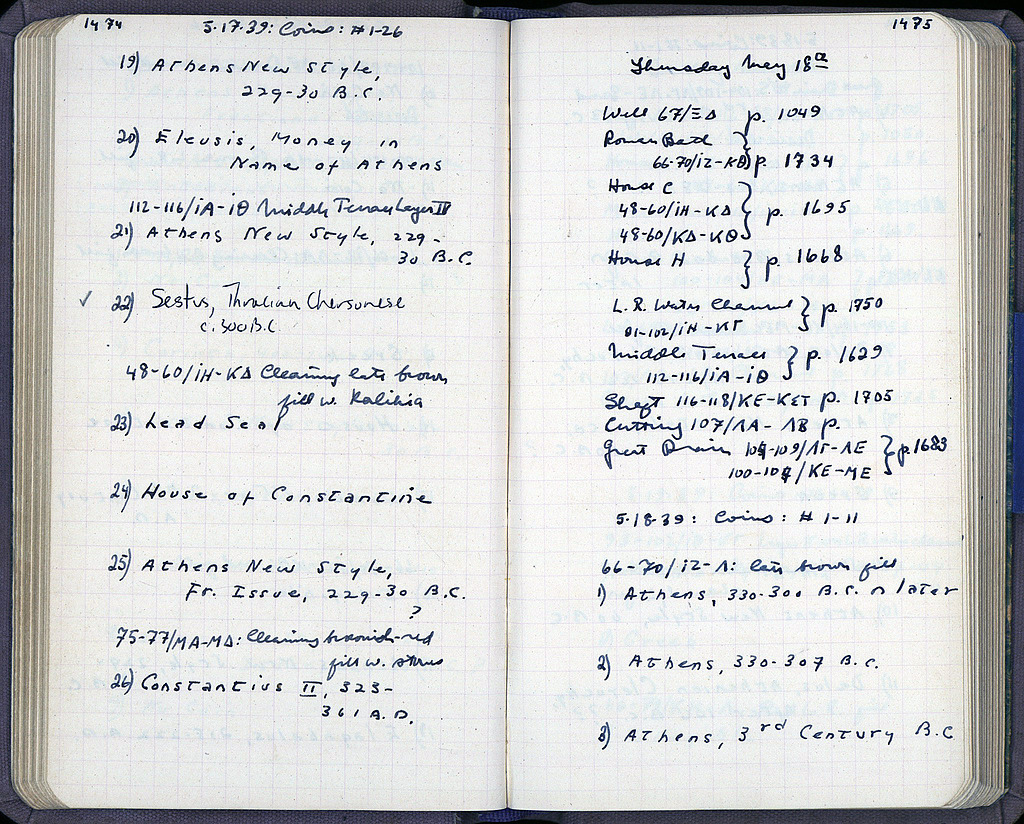 1474
5·17·39: Coins: #1-26
19) Athens New Style,
229-30 B.C.
20) Eleusis, Money in
Name of Athens
112-116/ΙΑ-ΙΘ Middle Terrace Layer IV
21) Athens New Style, 229-
30 B.C.
✓ 22) Sestus, Thracian Chersonese
c. 300 B.C.
48-60/ΙΗ-ΚΔ Cleaning late brown
fill w. Kalikia
23) Lead Seal
24) House of Constantine
25) Athens New Style,
Fr. Issue, 229-30 B.C.
?
75-77/ΜΑ-ΜΔ: Cleaning brownish-red
fill w.
26) Constantius II, 323-
361 A.D.
1475
Thursday May 18th
Well 67/ΞΔ p. 1049
Roman Bath
66-70/ΙΖ-ΚΘ } p. 1734
House C
48-60/ΙΗ-ΚΔ } p. 1695
48-60/ΚΔ-ΚΘ
House H } p. 1668
L.R. Water Channel } p. 1750
91-102/ΙΗ-ΚΓ
Middle Terrace } p. 1629
112-116/ΙΑ-ΙΘ
Shaft 116-118/ΚΕ-ΚΣΤ p. 1705
Cutting 107/ΛΑ-ΛΒ p.
Great Drain 104-109/ΛΓ-ΛΕ } p. 1683
100-104/ΚΕ-ΜΕ
5·18·39: Coins: #1-11
66-70/ΙΖ-Λ: late brown fill
1) Athens, 330-300 B.C. or later
2) Athens, 330-307 B.C.
3) Athens, 3rd Century B.C